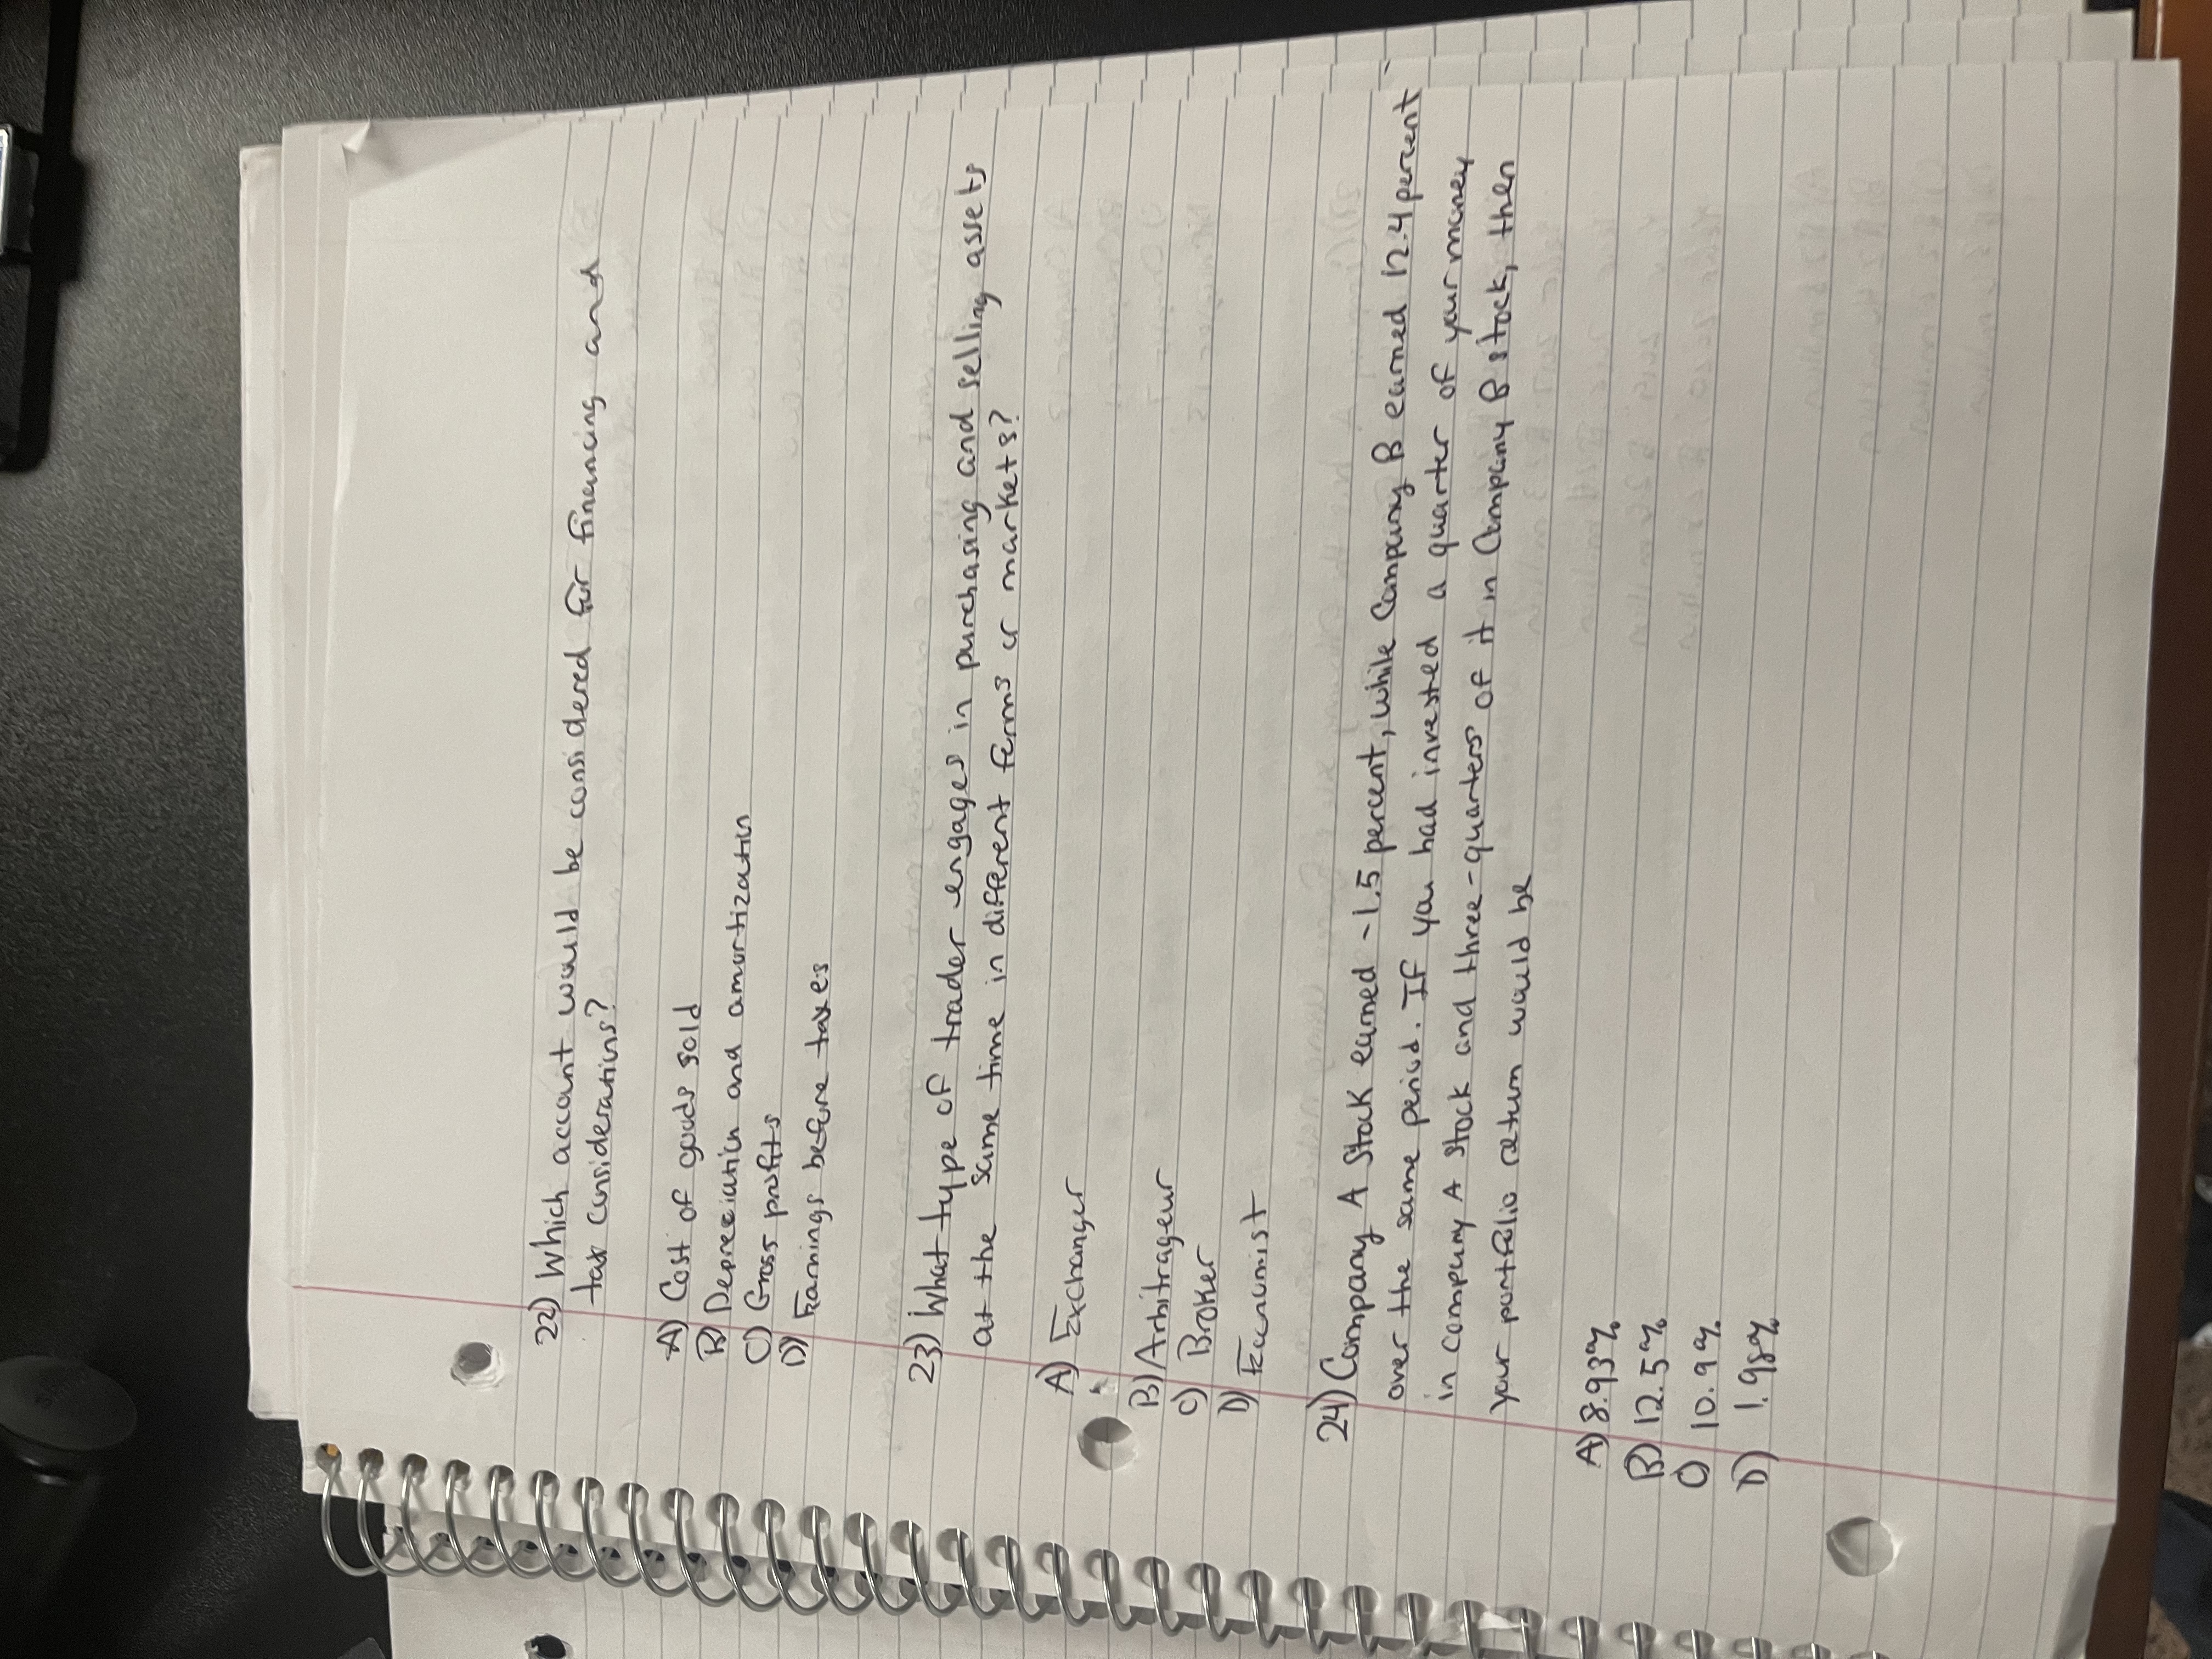 22) Which account would be considered for financing and
tax considerations?
A) Cost of goods sold
B) Depreciation and amortization
C) Gross profits
D) Earnings before taxes
23) What type of trader engages in purchasing and selling assets
at the same time in different forms or markets?
A) Exchanger
B) Arbitrageur
C) Broker
D) Economist
24) Company A Stock earned -1.5 percent, while Company B earned 12.4 percent
over the same period. If you had invested a quarter of your money
in company A stock and three-quarters of it in Company B stock, then
your portfolio return would be
A) 8.93%
B) 12.5%
C) 10.9%
D) 1.98%